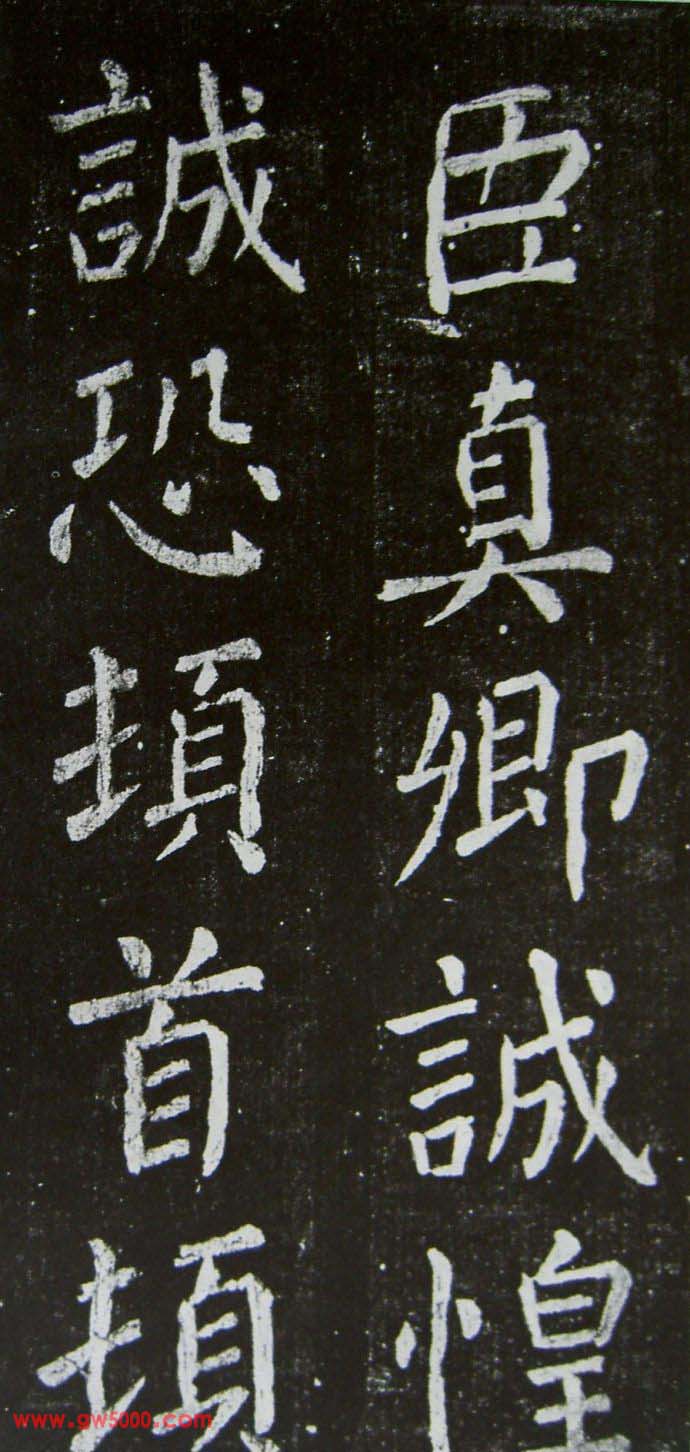 臣真卿誠惶
誠恐頓首頓
www.gw5000.com